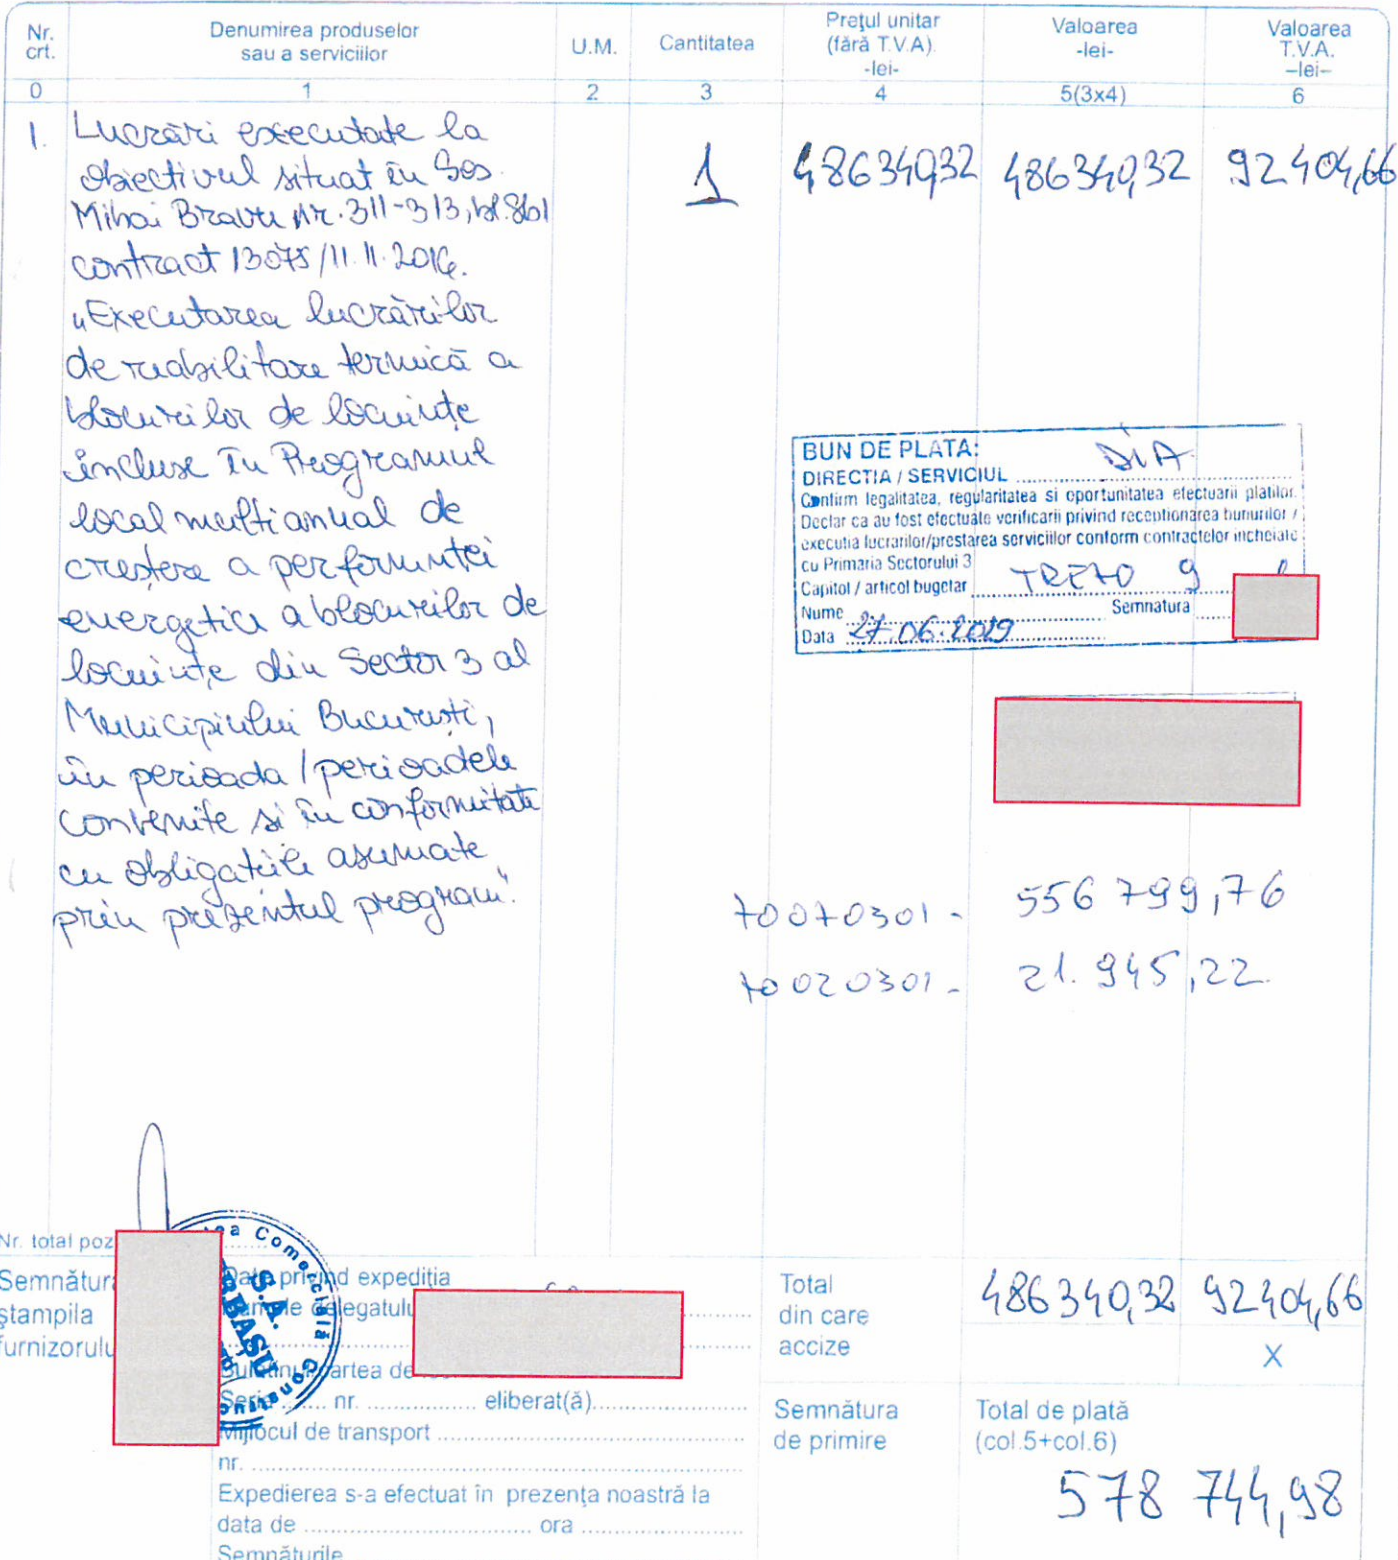 Nr. crt. Denumirea produselor sau a serviciilor U.M. Cantitatea Preţul unitar (fără T.V.A) -lei- Valoarea -lei- Valoarea T.V.A. -lei-
0 1 2 3 4 5(3x4) 6
1. Lucrări executate la
obiectivul situat în Sos.
Mihai Bravu nr. 311-313, bl. SB1
1 486340,32 486340,32 92404,66
contract 13075/11.11.2016.
„Executarea lucrărilor
de reabilitare termică a
blocurilor de locuințe
incluse în Programul
local multianual de
creștere a performanței
energetice a blocurilor de
locuințe din Sector 3 al
Municipiului București,
în perioada / perioadele
convenite si în conformitate
cu obligațiile asumate
prin prezentul program".
BUN DE PLATA:
DIRECTIA / SERVICIUL DIA
Confirm legalitatea, regularitatea si oportunitatea efectuarii platilor.
Declar ca au fost efectuate verificarii privind receptionarea bunurilor /
executia lucrarilor/prestarea serviciilor conform contractelor incheiate
cu Primaria Sectorului 3
Capitol / articol bugetar
Nume Semnatura
Data 27.06.2019
70070301 - 556 799,76
70020301 - 21.945,22
Nr. total poz
Semnătura
ştampila
furnizorulu
Comercială
S.A.
Date privind expediţia
Numele delegatulu
Buletinul/cartea de
Seria ....... nr. ................ eliberat(ă)
Mijlocul de transport
nr.
Expedierea s-a efectuat în prezenţa noastră la
data de ................ ora
Semnăturile
Total
din care
accize
486340,32 92404,66
X
Semnătura
de primire
Total de plată
(col.5+col.6)
578 744,98